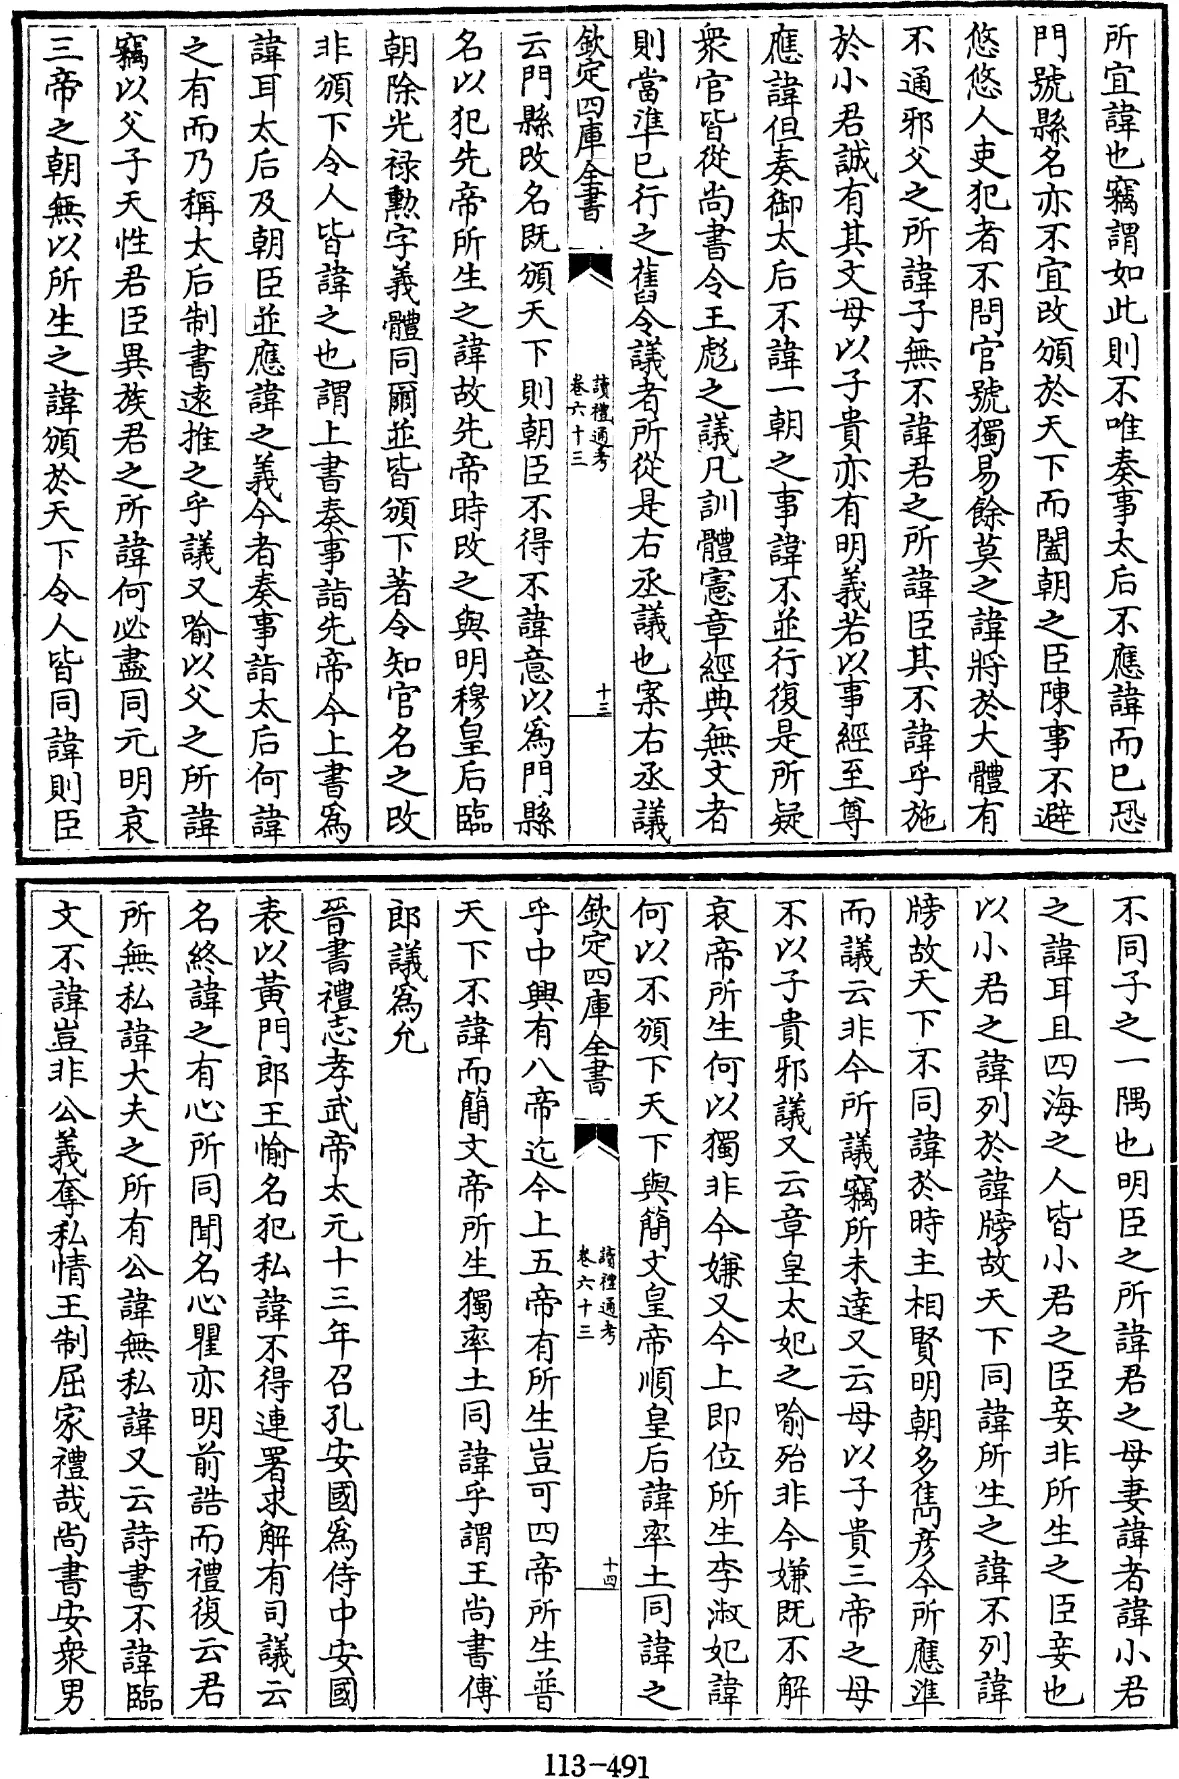 所宜諱也竊謂如此則不唯奏事太后不應諱而已恐
門號縣名亦不宜改頒於天下而闔朝之臣陳事不避
悠悠人吏犯者不問官號獨易餘莫之諱將於大體有
不通邪父之所諱子無不諱君之所諱臣其不諱乎施
於小君誠有其文母以子貴亦有明義若以事經至尊
應諱但奏御太后不諱一朝之事諱不並行復是所疑
衆官皆從尚書令王彪之議凡訓體憲章經典無文者
則當準已行之舊令議者所從是右丞議也案右丞議
欽定四庫全書
讀禮通考
卷六十三
十三
云門縣改名既頒天下則朝臣不得不諱意以爲門縣
名以犯先帝所生之諱故先帝時改之與明穆皇后臨
朝除光祿勲字義體同爾並皆頒下著令知官名之改
非頒下令人皆諱之也謂上書奏事詣先帝今上書爲
諱耳太后及朝臣並應諱之義今者奏事詣太后何諱
之有而乃稱太后制書遠推之乎議又喻以父之所諱
竊以父子天性君臣異族君之所諱何必盡同元明哀
三帝之朝無以所生之諱頒於天下令人皆同諱則臣
不同子之一隅也明臣之所諱君之母妻諱者諱小君
之諱耳且四海之人皆小君之臣妾非所生之臣妾也
以小君之諱列於諱牓故天下同諱所生之諱不列諱
牓故天下不同諱於時主相賢明朝多雋彦今所應準
而議云非今所議竊所未達又云母以子貴三帝之母
不以子貴邪議又云章皇太妃之喻殆非今嫌既不解
哀帝所生何以獨非今嫌又今上即位所生李淑妃諱
何以不頒下天下與簡文皇帝順皇后諱率土同諱之
欽定四庫全書
讀禮通考
卷六十三
十四
乎中興有八帝迄今上五帝有所生豈可四帝所生普
天下不諱而簡文帝所生獨率土同諱乎謂王尚書傅
郎議爲允
晉書禮志孝武帝太元十三年召孔安國爲侍中安國
表以黄門郎王愉名犯私諱不得連署求解有司議云
名終諱之有心所同聞名心瞿亦明前誥而禮復云君
所無私諱大夫之所有公諱無私諱又云詩書不諱臨
文不諱豈非公義奪私情王制屈家禮哉尚書安衆男
113-491